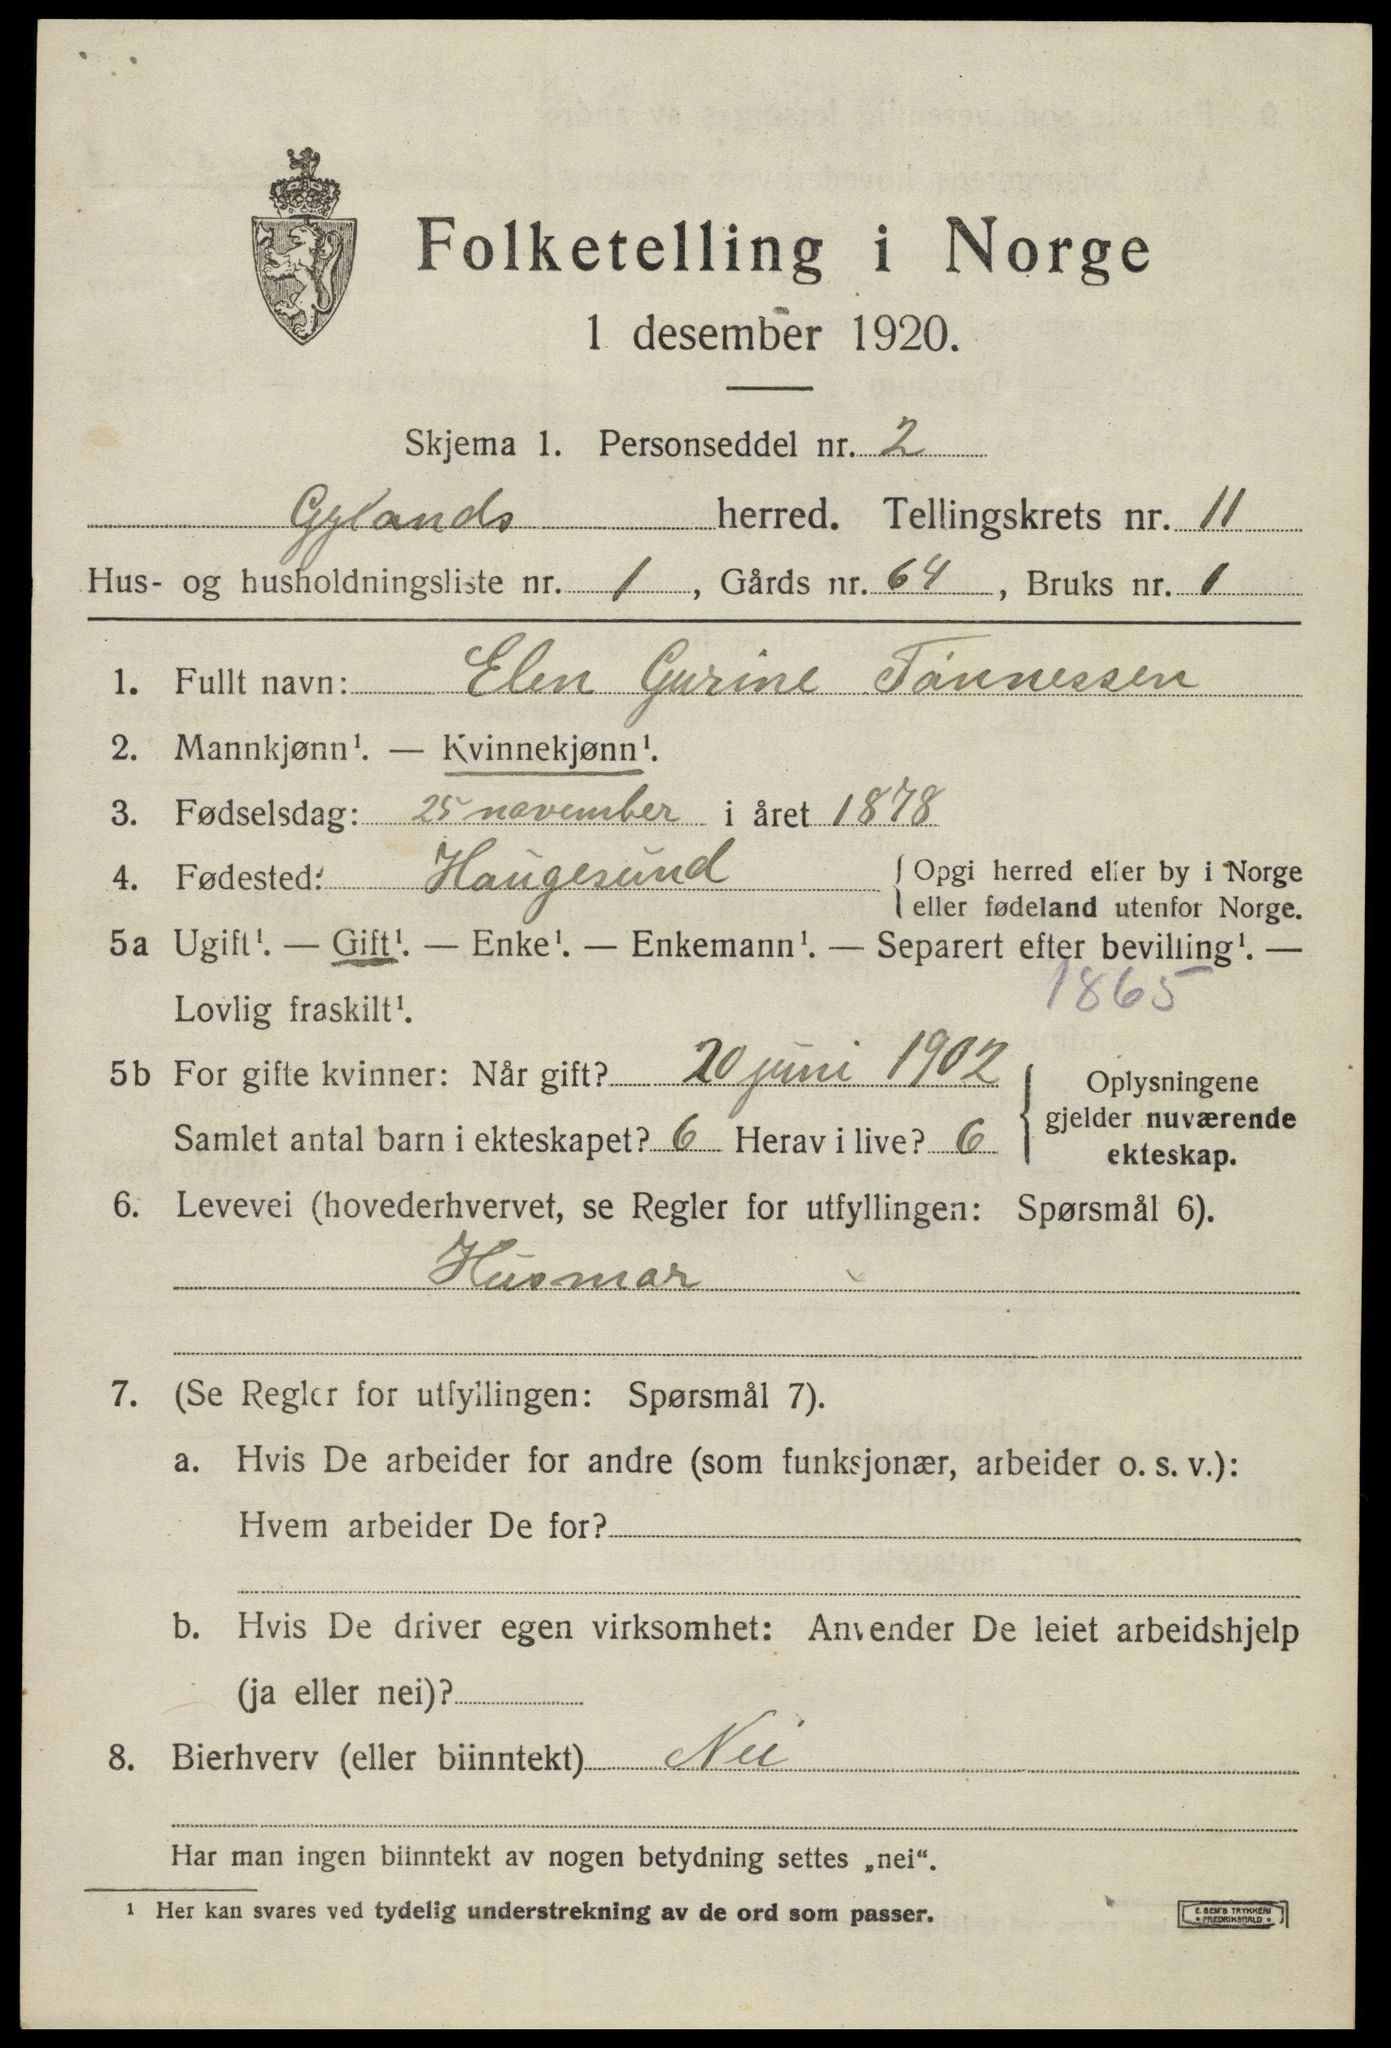 Folketelling i Norge
1 desember 1920.
Skjema 1. Personseddel nr. 2
Gylands herred. Tellingskrets nr. 11
Hus- og husholdningsliste nr. 1, Gårds nr. 64, Bruks nr. 1
1. Fullt navn: Elen Gurine Tönnessen
2. Mannkjønn¹. — Kvinnekjønn¹.
3. Fødselsdag: 25 november i året 1878
4. Fødested: Haugesund { Opgi herred eller by i Norge
eller fødeland utenfor Norge.
5a Ugift¹. — Gift¹. — Enke¹. — Enkemann¹. — Separert efter bevilling¹. —
Lovlig fraskilt¹. 1865
5b For gifte kvinner: Når gift? 20 juni 1902
Samlet antal barn i ekteskapet? 6 Herav i live? 6
{ Oplysningene
gjelder nuværende
ekteskap.
6. Levevei (hovederhvervet, se Regler for utfyllingen: Spørsmål 6).
Husmor
7. (Se Regler for utfyllingen: Spørsmål 7).
a. Hvis De arbeider for andre (som funksjonær, arbeider o. s. v.):
Hvem arbeider De for?
b. Hvis De driver egen virksomhet: Anvender De leiet arbeidshjelp
(ja eller nei)?
8. Bierhverv (eller biinntekt) Nei
Har man ingen biinntekt av nogen betydning settes „nei“.
¹ Her kan svares ved tydelig understrekning av de ord som passer.
E. SEM'S TRYKKERI
FREDRIKSHALD